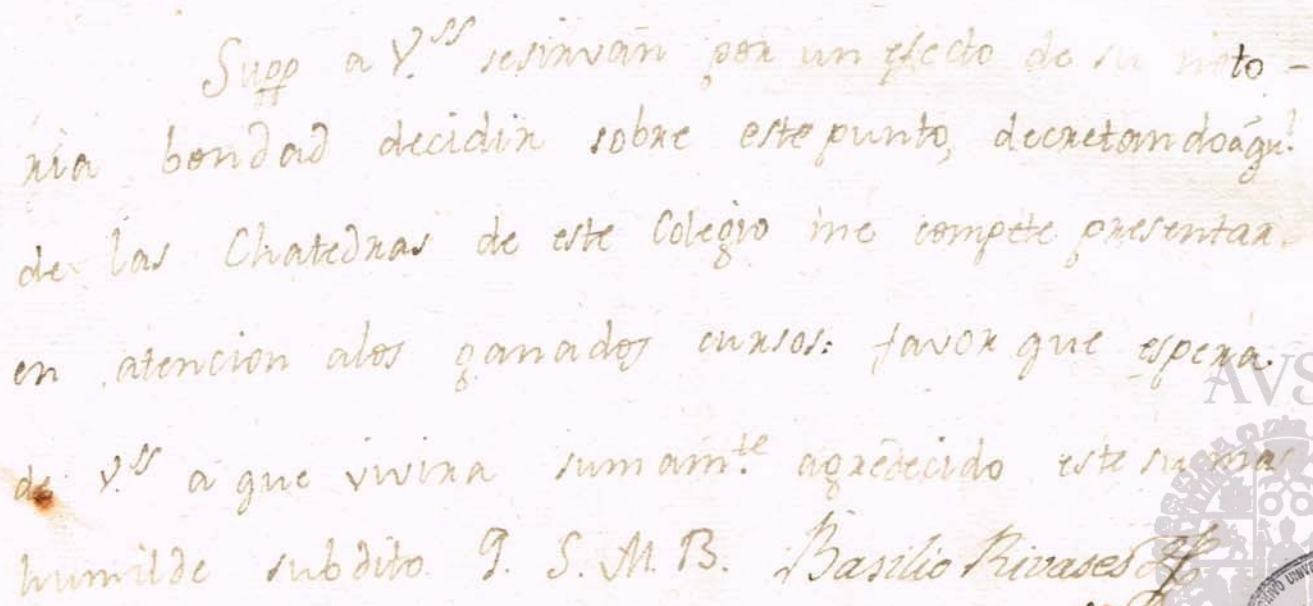 Supp a V.ss sesirvan por un efecto de su noto-
ria bondad decidir sobre este punto, decretando áqu.l
de las Chatedras de este Colegio me compete presentar.
en atencion alos ganados cursos: favor que espera.
de V.ss á que vivira sumam.te agredecido este su mas
humilde subdito. Q. S. M. B. Basilio Rivases
AVS